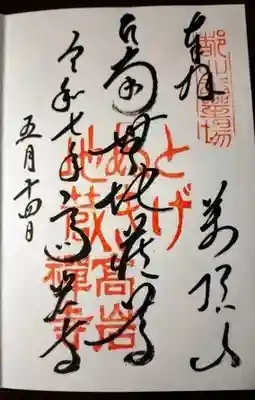 奉拝
萬頂山
地蔵尊
令和七年 高岩寺
五月十四日
とげ
ぬき
地蔵
高岩
禅寺